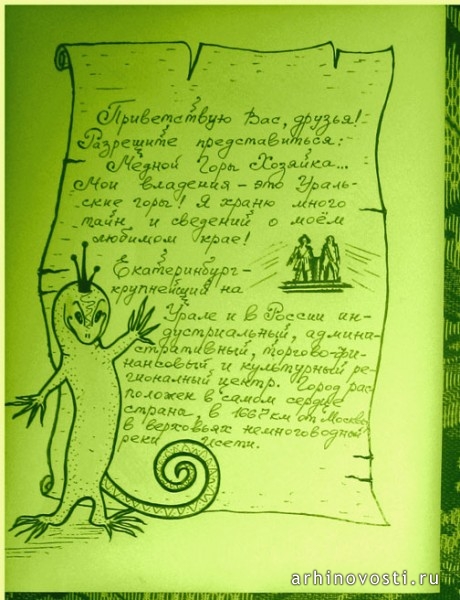 Приветствую Вас, друзья!
Разрешите представиться:
Медной Горы Хозяйка...
Мои владения – это Ураль-
ские горы! Я храню много
тайн и сведений о моём
любимом крае!
Екатеринбург-
крупнейший на
Урале и в России ин-
дустриальный, админи-
стративный, торгово-фи-
нансовый и культурный ре-
гиональный центр. Город рас
положен в самом сердце
страны, в 1667 км от Москвы,
в верховьях немноговодной
реки Исети.
arhinovosti.ru